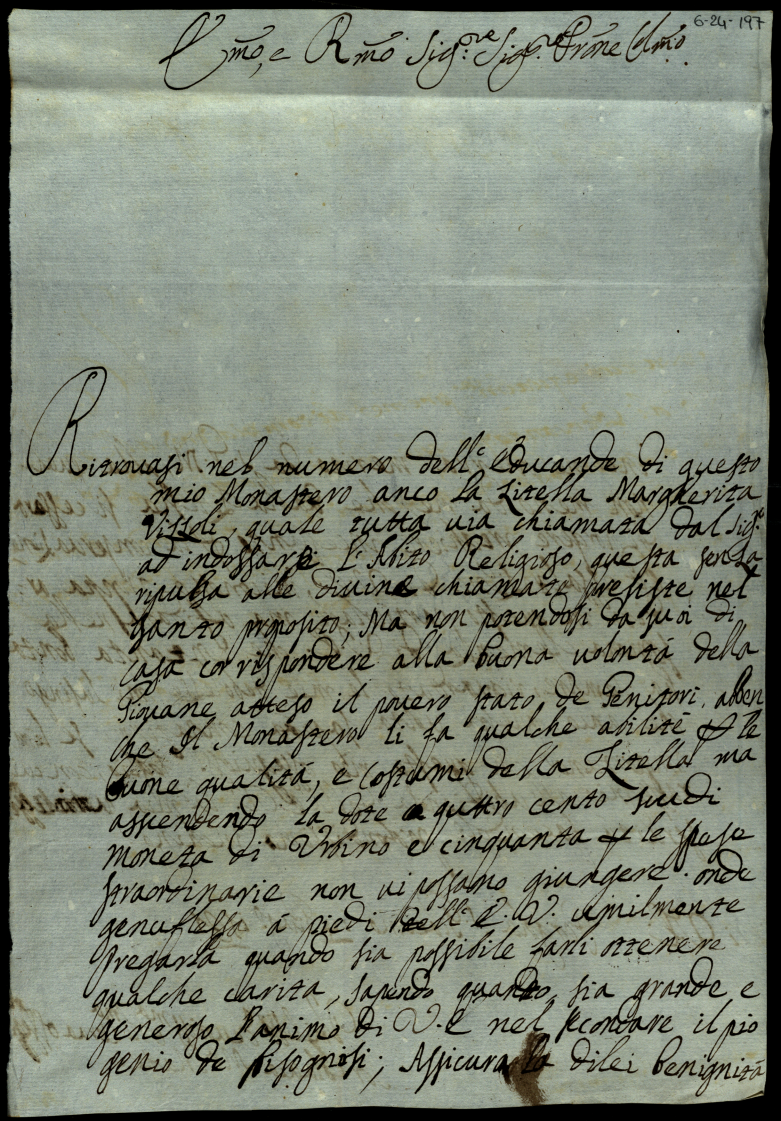 6-24-197
Emõ, e Rmõ Sig.re Sig.re Prõne Colmõ.
Ritrouasi nel numero dell.e educande di questo
mio Monastero anco la Zitella Margherita
Vissoli, quale tutta uia chiamata dal Sig.re
ad indossare l'Abito Religioso, questa senza
ripulsa alle diuine chiamate presiste nel
santo proposito; Ma non potendosi da suoi di
casa corrispondere alla buona uolontá della
Giouane atteso il pouero stato de Genitori, alben
che Il Monastero li fa qualche abilité p le
buone qualitá, e Costumi della Zitella ma
ascendendo la dote a quttro cento scudi
moneta di Vrbino e cinquanta p le spese
straordinarie non ui possano giungere. onde
genuflessa á piedi dell.' E. V. umilmente
Pregarla quando sia possibile farli ottenere
qualche carita, sapendo quanto sia grande e
generoso l'animo di V. E nel secondare il pio
genio de bisognosi; Assicura la dilei benignitá